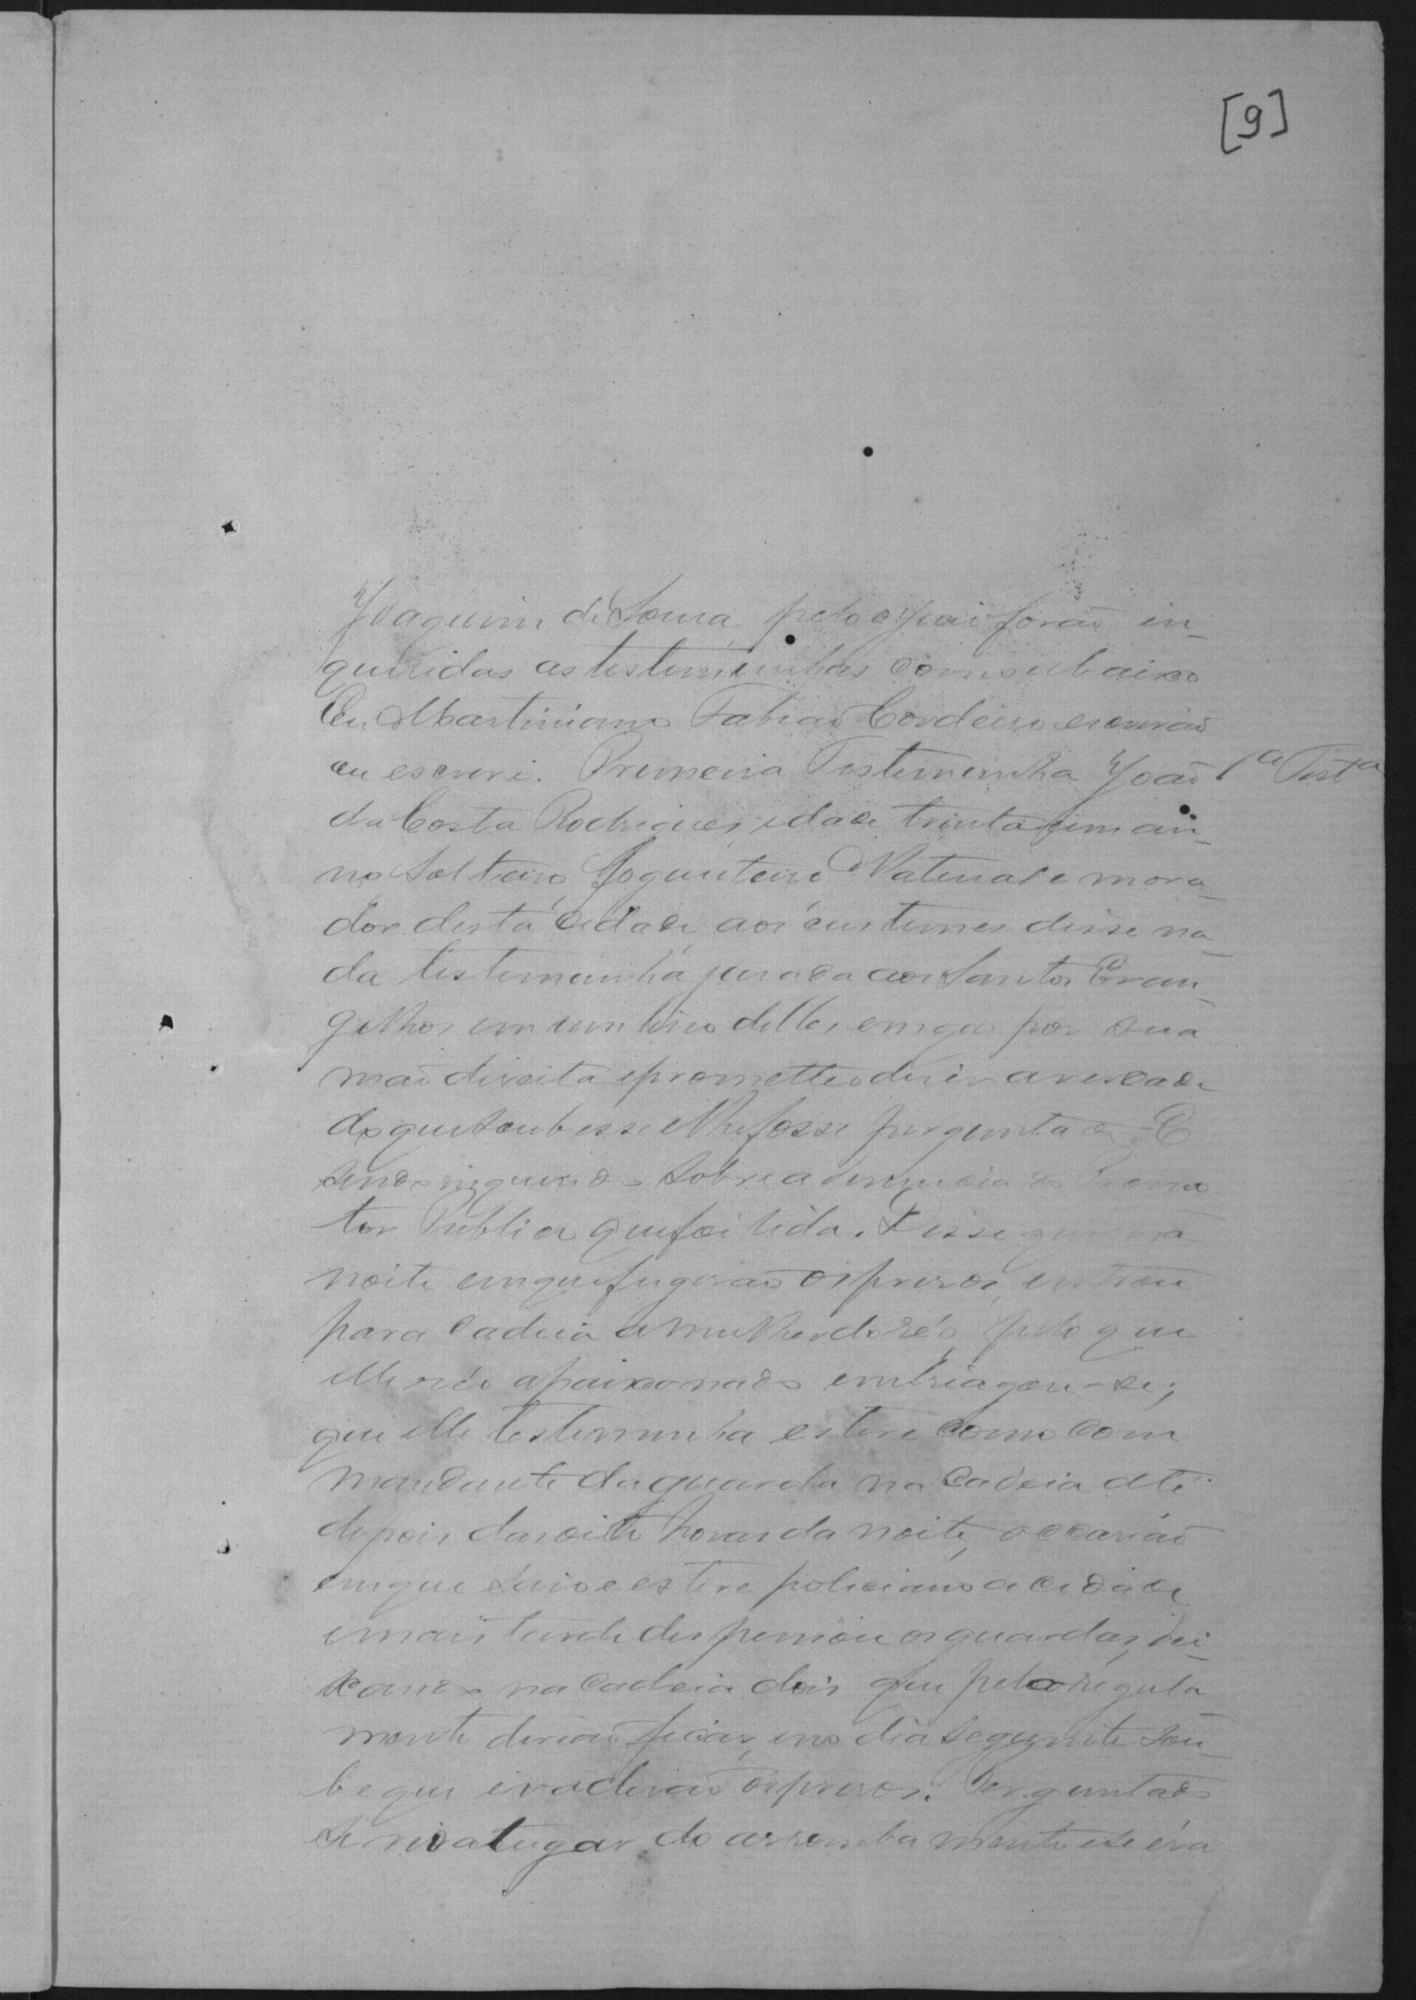 [9]
Joaquim de Souza pelo qual forão in-
queridas as testemunhas como abaixo
Eu Martiniano Fabião Cordeiro escrivão
eu escrevi. Premeira Testemunha João
1ª Testª
da Costa Rodrigues, edade trinta e um an-
no Solteiro Fogueteiro Natural e mora-
dor desta cidade aos custumes disse na-
da testemunha jurada aos Santos Evan-
gelhos em um livro delles em que por sua
mão direita e prometteo diser a verdade
do que soubesse e lhe fosse perguntado E
sendo inquerido sobre a denuncia do Promo
tor Publico que foi lida. Disse que na
noite em que fugirão os presos, entrou
para cadeia a mulher do réo, pelo que
elle réo apaixonado embriagou-se;
que elle testemunha esteve como com
mandante da guarda na Cadeia até
depois das oito horas da noite, occasião
em que saio e esteve policiando a cidade
e mais tarde dispensou os guardas, dei-
xando na cadeia dois que pelo regula-
mento devião ficar, e no dia seguinte sou-
be que evadirão os presos. Perguntado
se vio a lugar do arrombamento e se éra